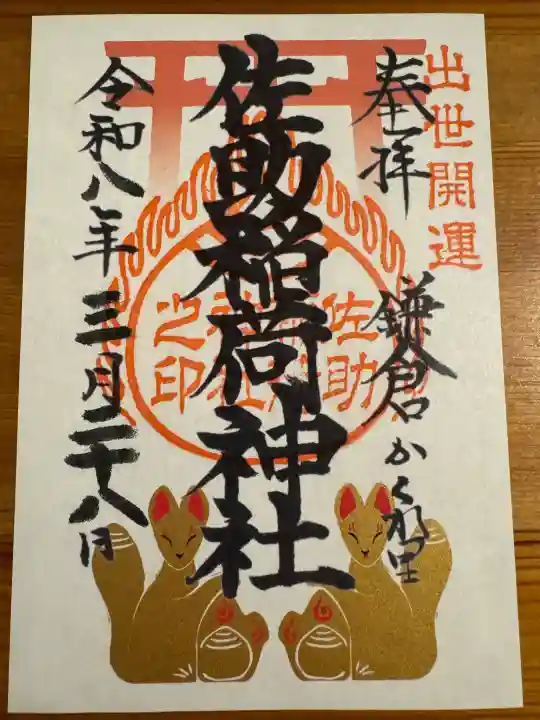 出世開運
奉拝
鎌倉かくれ里
佐助稲荷神社
佐助
之印
令和八年三月二十八日